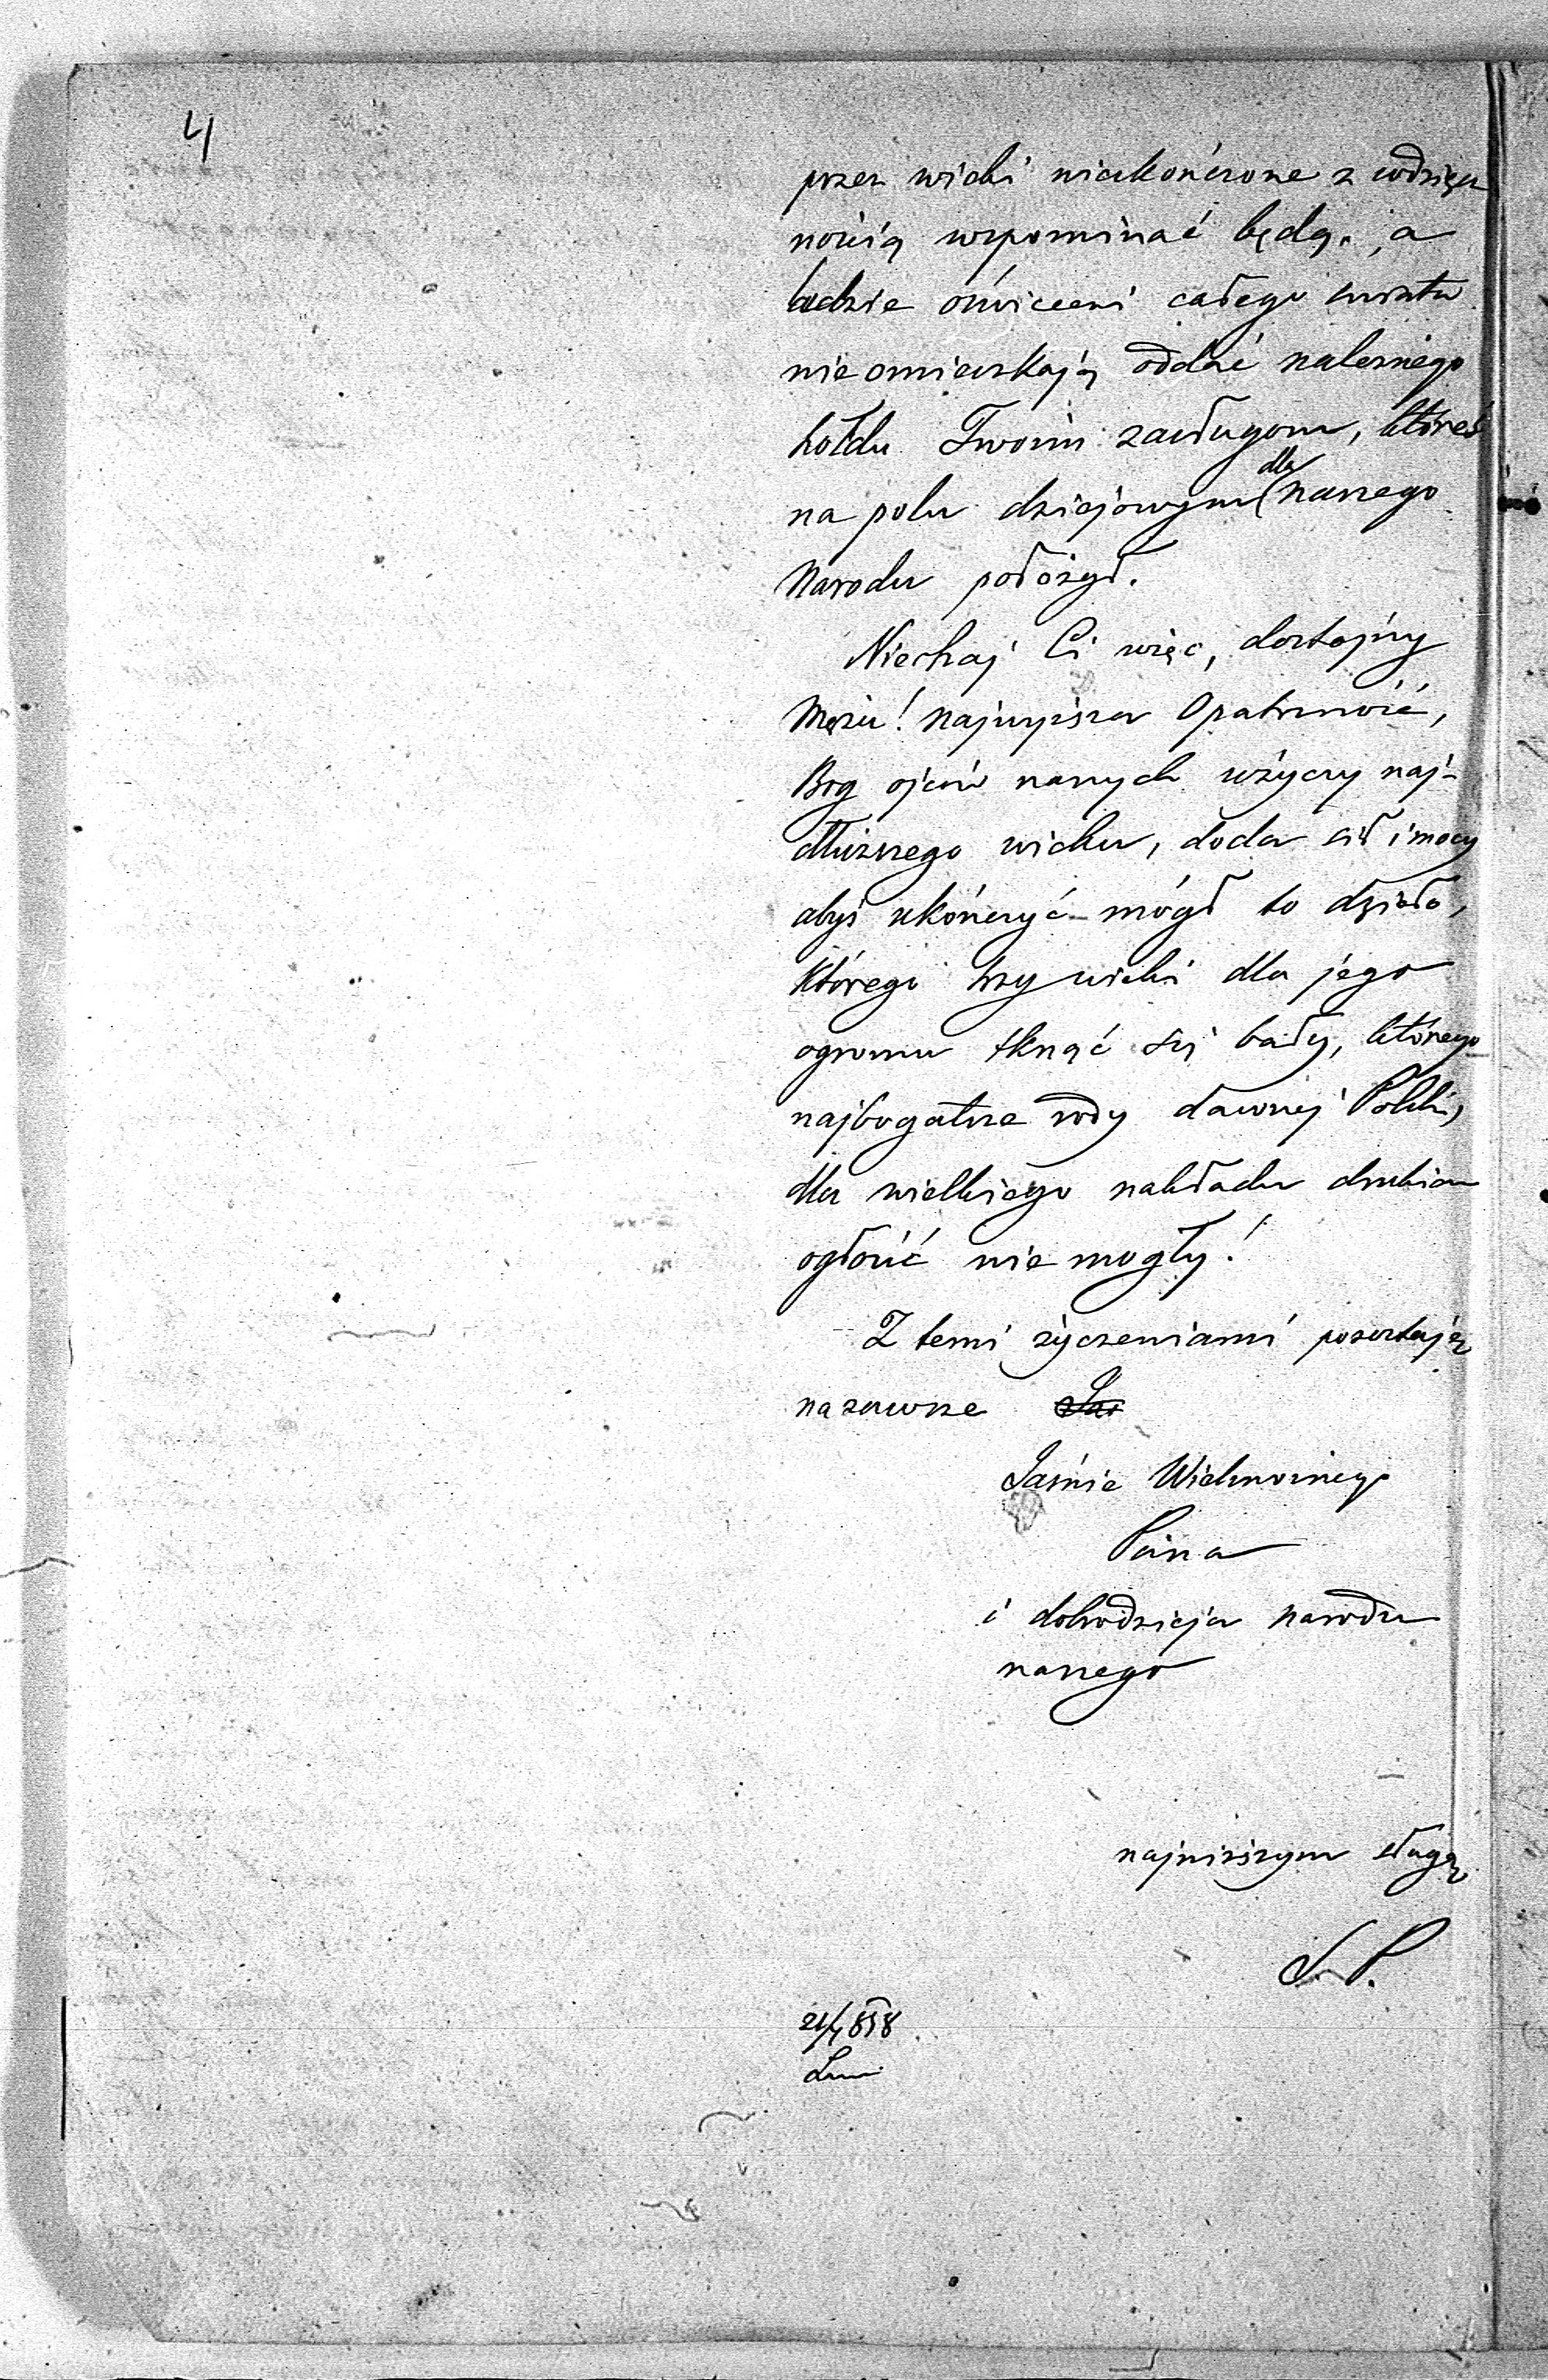 4
przez wieki nieskończone z wdzięcz
nością wspominać będą, a
ludzie oświeceni całego świata
nieomieszkają oddać należnego
hołdu Twoim zasługom, któreś
na polu dziejowym dla naszego
Narodu położył.
Niechaj Ci więc, dostojny
Mężu! najwyższa Opatrzność,
Bóg ojców naszych użyczy naj-
dłuższego wieku, doda sił i mocy
abyś ukończyć mógł to dzieło,
którego trzy wieki dla jego
ogromu tknąć się bały, którego
najbogatsze rody dawnej Polski,
dla wielkiego nakładu drukiem
ogłosić nie mogły!
Z temi życzeniami pozostaję
na zawsze Jaś
Jaśnie Wielmożnego
Pana
i dobrodzieja narodu
naszego
najniższym sługą
S. P.
21/4 858